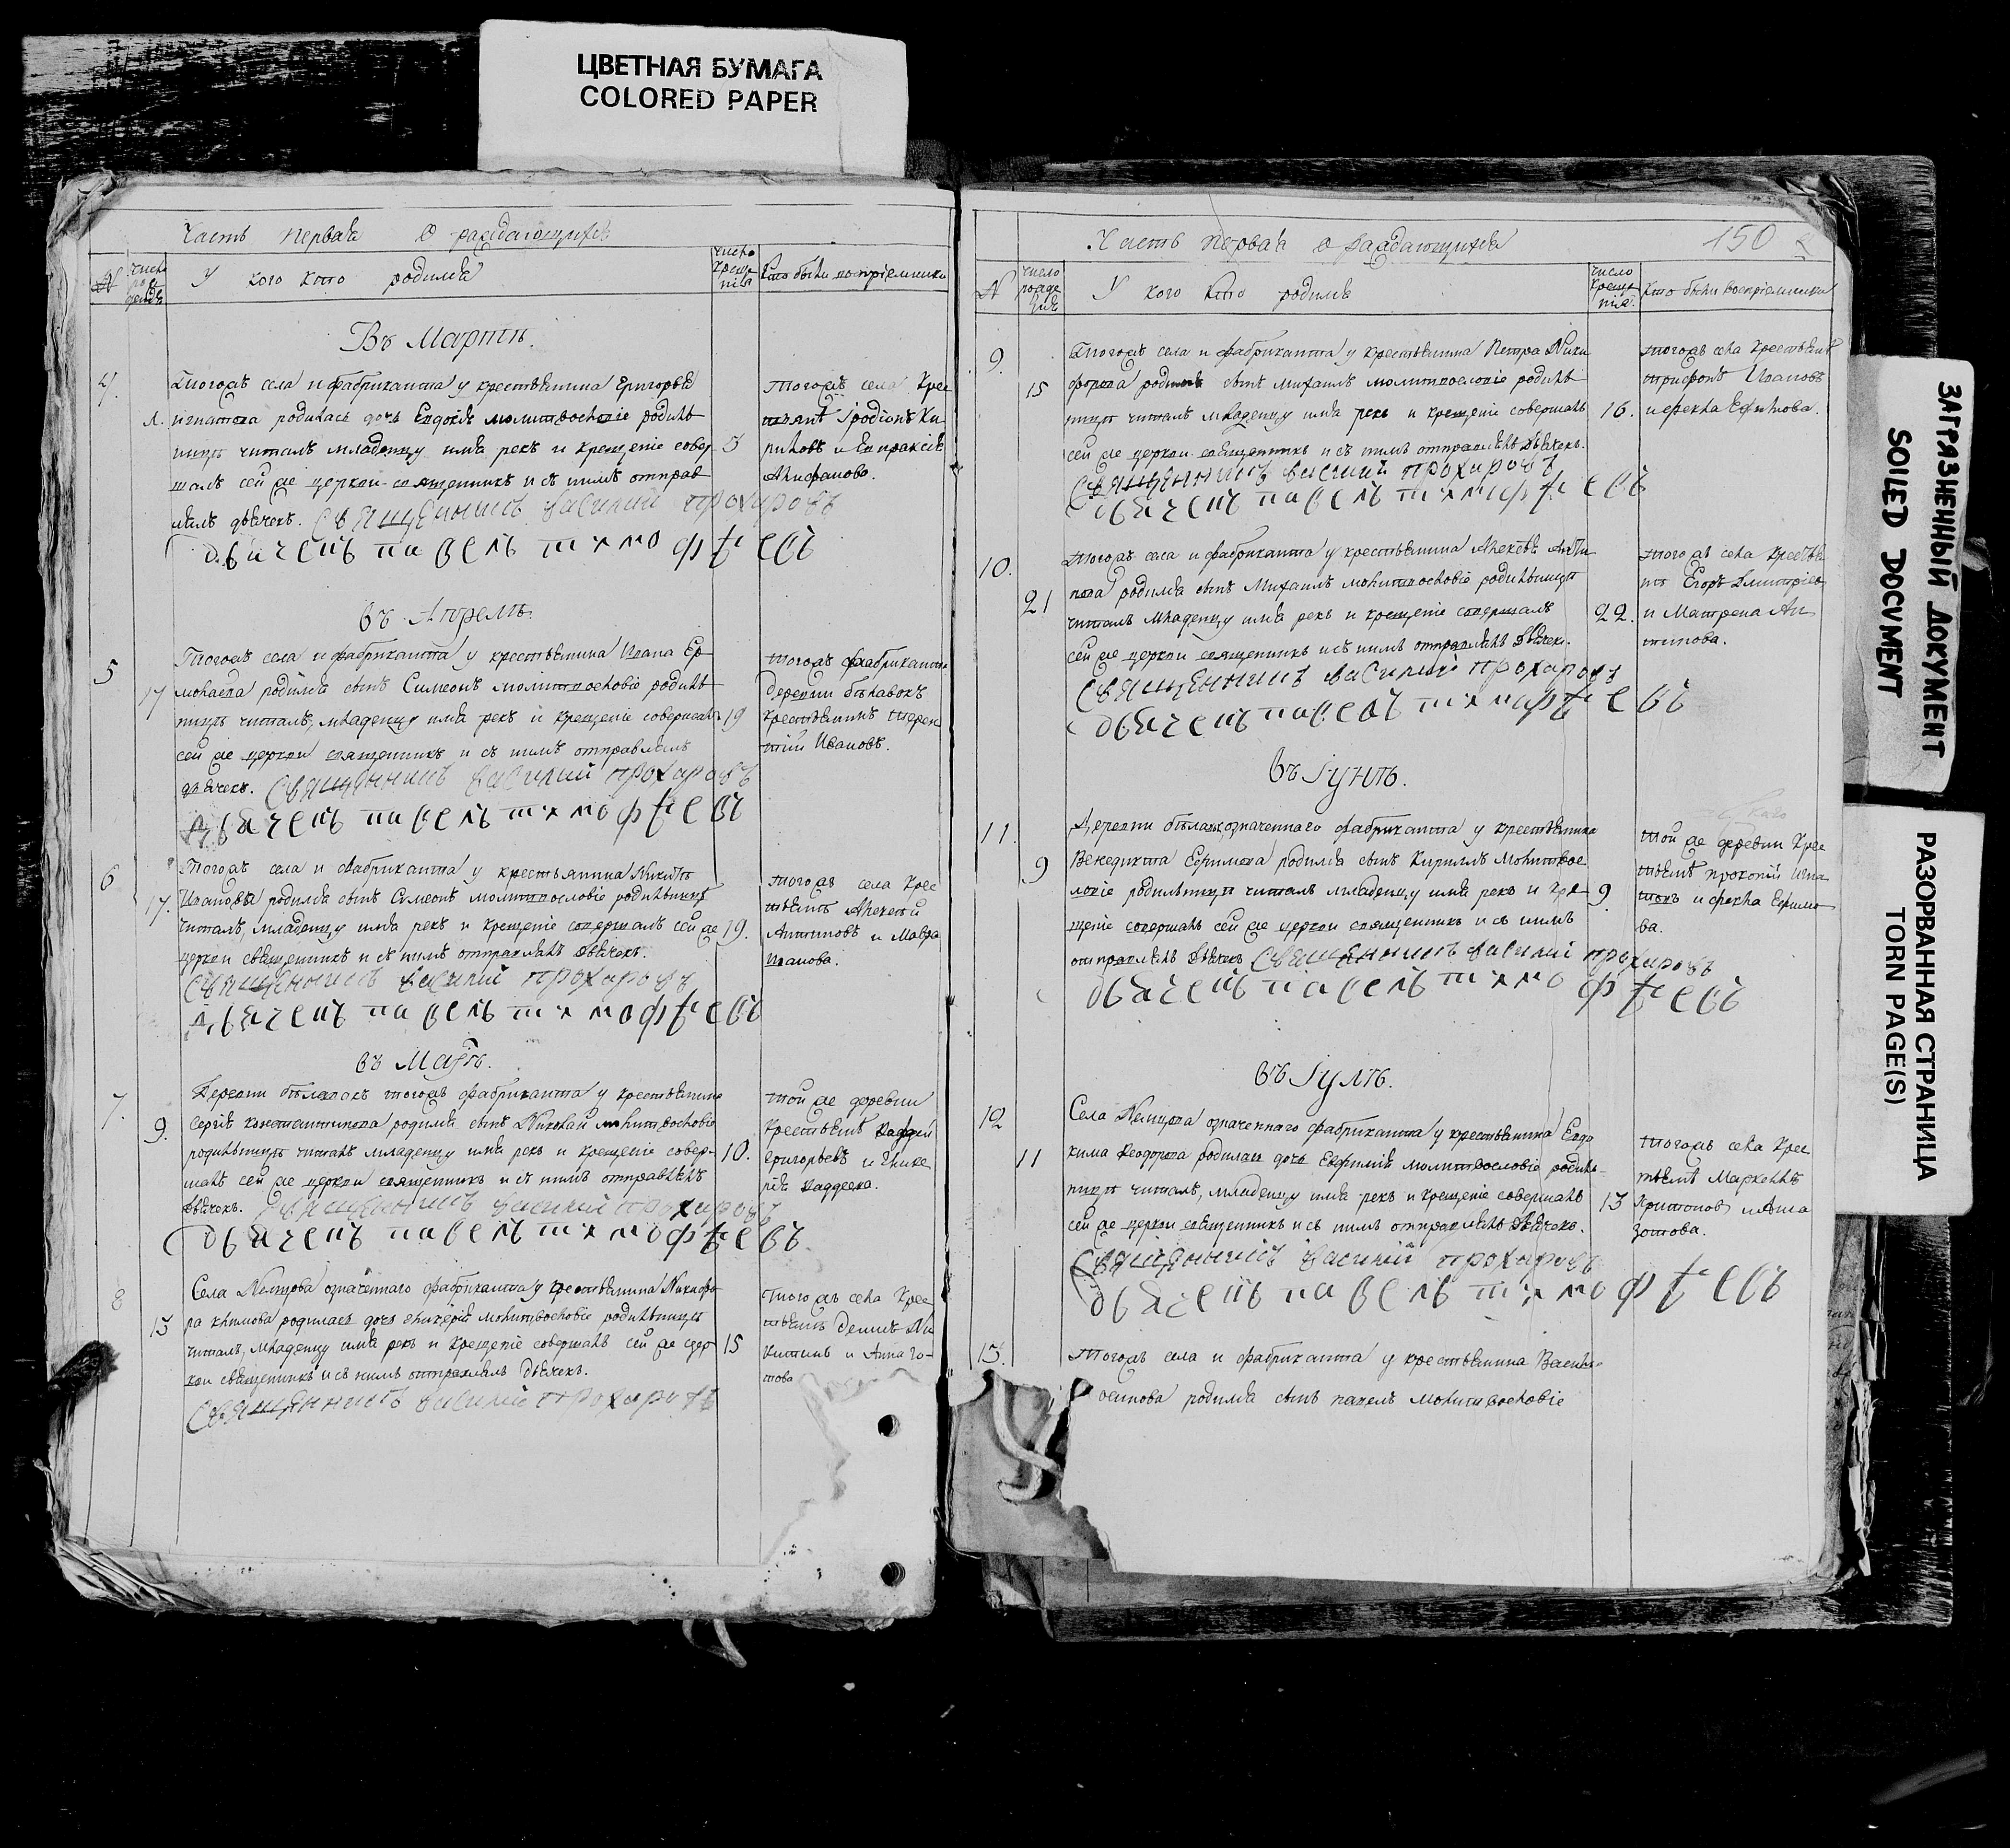 ЦВЕТНАЯ БУМАГА
COLORED PAPER
Часть первая о раждающихся
№
число рождения
У кого кто родился
число крещения
кто были воспріемники
Въ Мартѣ.
4.
Тогожъ села и фабриканта у крестьянина Григорья
Игнатова родилась дочь Евдокія молитвословіе родиль
ницѣ читалъ младенцу имя рекъ и крещеніе совер
3
шалъ сей же церкви священникъ и съ нимъ отправ
лялъ дьячекъ. Священникъ василий прохоровъ
дьячекъ павелъ тимофѣевъ
тогожъ села крес
тьянинъ Іродіонъ Ки
риловъ и Евпраксія
Анфанова.
въ Апрелѣ.
5
17
Тогожъ села и фабриканта у крестьянина Ивана Ер
молаева родился сынъ Симеонъ молитвословіе родиль
ницѣ читалъ, младенцу имя рекъ и крещеніе совершалъ
19
сей же церкви священникъ и съ нимъ отправлялъ
дьячекъ. Священникъ василий прохоровъ
дьячекъ павелъ тимофѣевъ
тогожъ фабриканта
деревни бѣлавокъ
крестьянинъ терен
тій Ивановъ.
6
17.
Тогожъ села и фабриканта у крестьянина Никиты
Иванова родился сынъ Симеонъ молитвословіе родильницѣ
читалъ, младенцу имя рекъ и крещеніе совершалъ сей же
19.
церкви священникъ и съ нимъ отправлялъ дьячекъ.
Священникъ василий прохоровъ
дьячекъ павелъ тимофѣевъ
тогожъ села крес
тьянинъ Алексей
Антиповъ и Мавра
Иванова.
въ Маіѣ.
7.
9.
Деревни бѣлавокъ тогожъ фабриканта у крестьянина
Сергія константинова родился сынъ Николай молитвословіе
родильницѣ читалъ младенцу имя рекъ и крещеніе совер
10.
шалъ сей же церкви священникъ и съ нимъ отправлялъ
дьячекъ. Священникъ василий прохоровъ
дьячекъ павелъ тимофѣевъ
той же деревни
крестьянинъ Фаддей
Григорьевъ и Глике
рія Фаддеева.
8
13
Села Немцова означеннаго фабриканта у крестьянина Никифо
ра климова родилась дочь Гликерія молитвословіе родильницѣ
читалъ, младенцу имя рекъ и крещеніе совершалъ сей же цер
15
кви священникъ и съ нимъ отправлялъ дьячекъ.
Священникъ василий прохоровъ
тогожъ села крес
тьянинъ Денисъ Ни
китинъ и Анна
това
Часть первая о раждающихся
150
№
число рожденія
У кого кто родился
число крещенія.
кто были воспріемники
9.
15
Тогожъ села и фабриканта у крестьянина Петра Ники
форова родился сынъ Михаилъ молитвословіе родиль
ницѣ читалъ младенцу имя рекъ и крещеніе совершалъ
16.
сей же церкви священникъ и съ нимъ отправлялъ дьячекъ.
Священникъ василий прохоровъ
дьячекъ павелъ тимофѣевъ
тогожъ села крестьянинъ
трифонъ Ивановъ
и фекла Ефимова.
10.
21
тогожъ села и фабриканта у крестьянина Алексѣя Анти
пова родился сынъ Михаилъ молитвословіе родильницѣ
читалъ младенцу имя рекъ и крещеніе совершалъ
22.
сей же церкви священникъ и съ нимъ отправлялъ дьячекъ.
Священникъ василий прохоровъ
дьячекъ павелъ тимофѣевъ
тогожъ села крестьяни
нъ Егоръ Димитріевъ
и Матрена Ан
типова.
въ Іунѣ.
11.
9
Деревни бѣлавокъ означеннаго фабриканта у крестьянина
Венедикта Ефимова родился сынъ Кириллъ молитвос
ловіе родильницѣ читалъ младенцу имя рекъ и кре
9.
щеніе совершалъ сей же церкви священникъ и съ нимъ
отправлялъ дьячекъ Священникъ василий прохоровъ
дьячекъ павелъ тимофѣевъ
той же деревни крес
тьянинъ прокопій Игна
товъ и фекла Ефимо
ва.
въ Іулѣ.
12
11
Села Немцова означеннаго фабриканта у крестьянина Евдо
кима Феодорова родилась дочь Евфимія молитвословіе родиль
ницѣ читалъ, младенцу имя рекъ и крещеніе совершалъ
13
сей же церкви священникъ и съ нимъ отправлялъ дьячекъ.
Священникъ василий прохоровъ
дьячекъ павелъ тимофѣевъ
тогожъ села крес
тьянинъ Маркеллъ
Харитоновъ и Анна
Зотова.
13.
тогожъ села и фабриканта у крестьянина Василь
осипова родился сынъ павелъ молитвословіе
ЗАГРЯЗНЕННЫЙ ДОКУМЕНТ
SOILED DOCUMENT
РАЗОРВАННАЯ СТРАНИЦА
TORN PAGE(S)